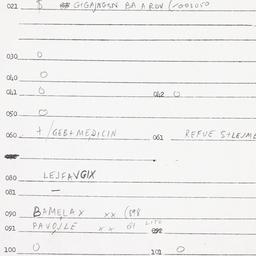 021 $ GIGAJNGEN BA A ROV (
030 0
040 0
041 0 042 0
050 0
060 + /GEB+MEDICIN 061 REFUE S+LEJME
080 LEJFAVGIX
081 —
090 BAMELAX xx (898
091 PAVOJLE xx 61 LITE 092
100 0 101 0